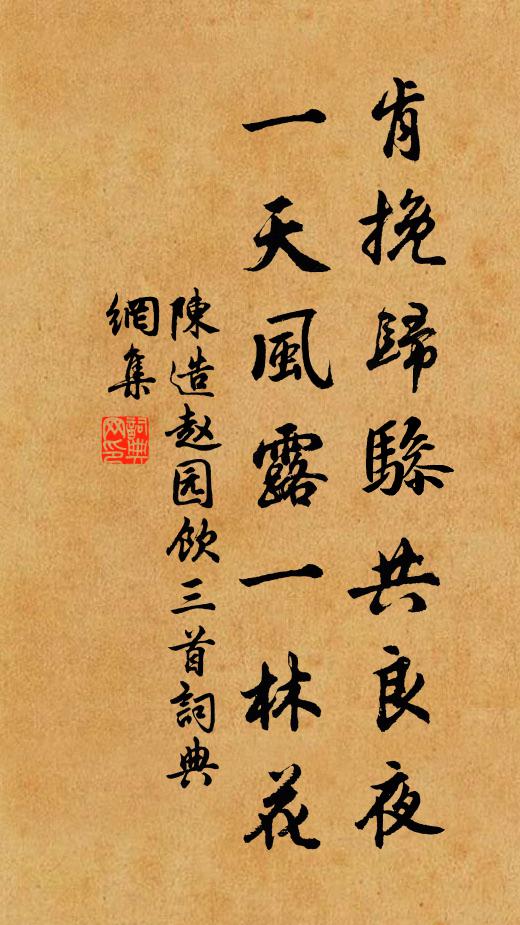 肯挽歸驂共良夜
一天風露一林花
陳造赵园飲三首詞典
網集
詞典
网印